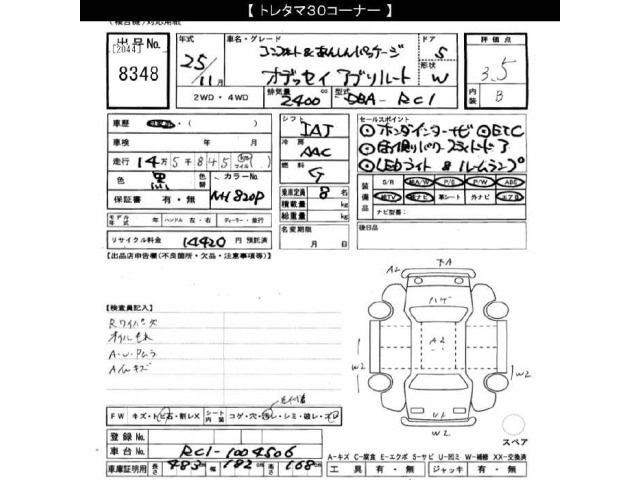 【 トレタマ30コーナー 】
(検合機) 対応用紙
出品No. [2044] 8348
年式 25/11月
車名・グレード コンフォート&あんしんパッケージ
オデッセイ アブソルート
ドア 5
形状 W
評価点 3.5
内装 B
2WD・4WD 排気量 2400 cc 型式 DBA-RC1
車歴 ・( )
車検 年 月
走行 14万5千845 ( )
色 黒 色替 カラーNo. NH820P
保証書 有・無
モデル年式 年 ハンドル 左・右 ディーラー・並行
リサイクル料金 14420 円 預託済
シフト IAT
冷房 AAC
燃料 G
乗車定員 8 名
積載量 kg
総重量 kg
名変期限 月 日
セールスポイント
◎ホンダインターナビ ◎ETC
◎両側パワースライドドア
◎LEDライト & ルームランプ
装備品 S/R 純A/W P/S P/W ABS
純TV 純ナビ 革シート 外ナビ エアB
ナビ型番:
後日品
【出品店申告欄(不良箇所・欠品・注意事項等)】
【検査員記入】
Rワイパーズ
オイルもれ
A・W・Pムラ
Aルムキズ
A2 下A
ハゲ
A2
W2 W2
U1
W2
スペア
FW キズ・トビ石・割レX シート内装 コゲ・穴・汚レ・シミ・破レ・ズレ
登録No.
車台No. RC1-1004506
車庫証明用 長さ 483 cm 幅 182 cm 高さ 168 cm
A-キズ C-腐食 E-エクボ S-サビ U-凹ミ W-補修 XX-交換済
工具 有・無 ジャッキ 有・無